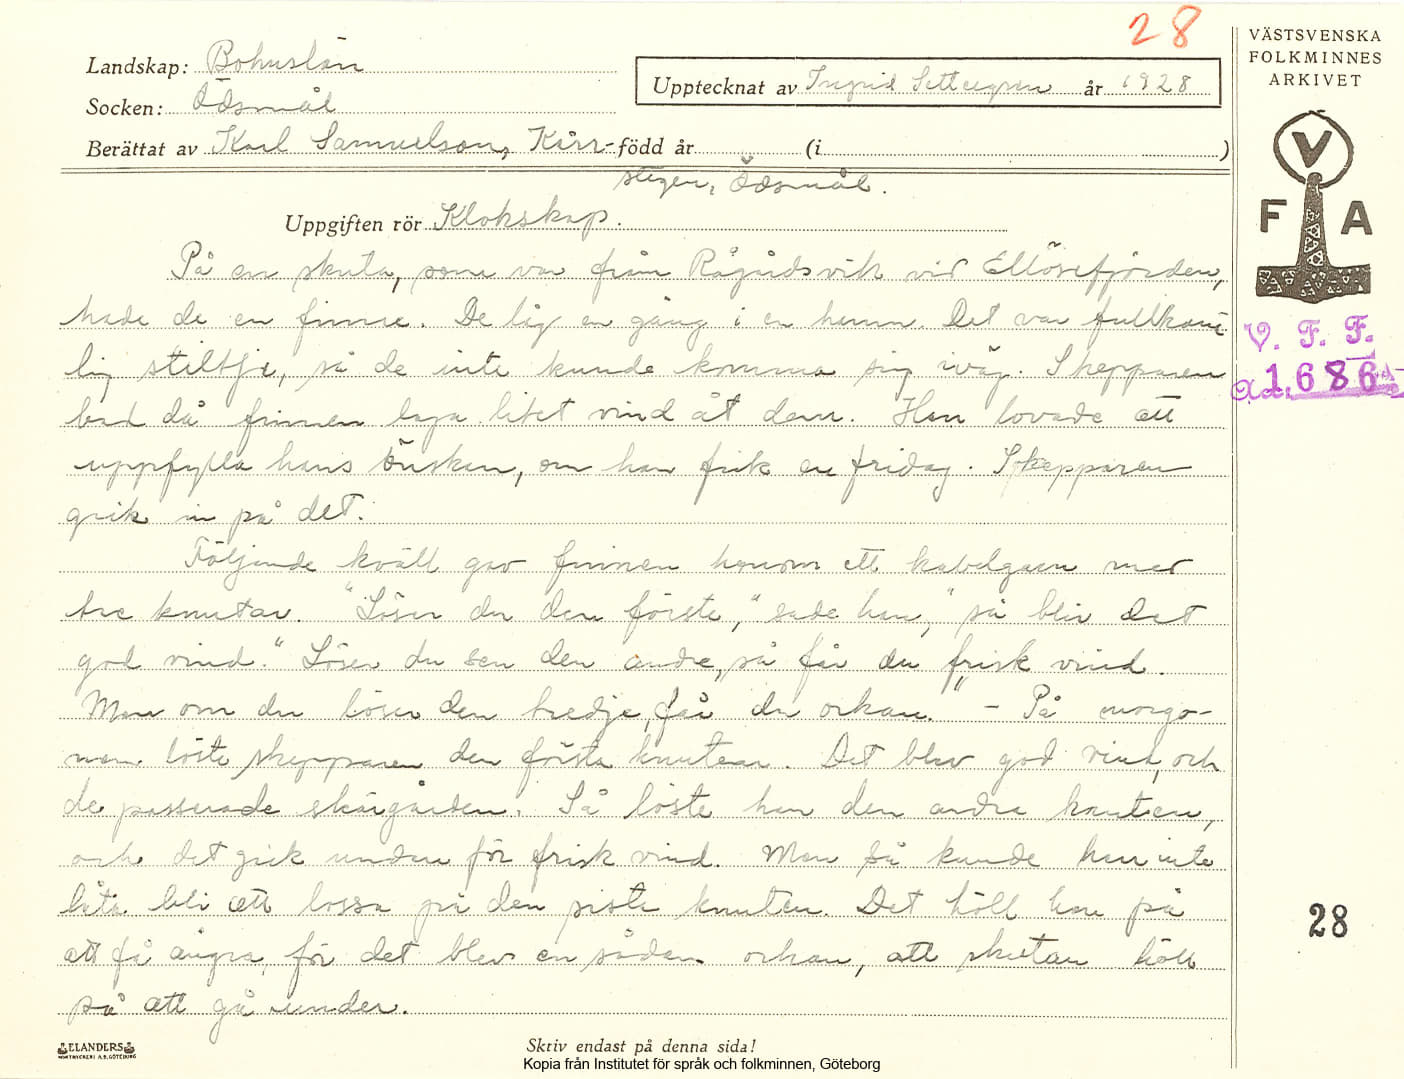 28
Landskap: Bohuslän
Socken: Ödsmål
Upptecknat av Ingrid Settergren år 1928
Berättat av Karl Samuelson, Kärr- född år (i )
stegen, Ödsmål.
Uppgiften rör Klokskap.
På en skuta, som var från Rågårdsvik vid Ellösefjorden,
hade de en finne. De låg en gång i en hamn. Det var fullkom-
lig stiltje, så de inte kunde komma sig iväg. Skepparen
bad då finnen laga litet vind åt dem. Han lovade att
uppfylla hans önskan, om han fick en fridag. Skepparen
gick in på det.
Följande kväll gav finnen honom ett kabelgarn med
tre knutar. "Löser du den förste," sade han, "så blir det
god vind." Löser du sen den andre, så får du frisk vind.
Men om du löser den tredje, får du orkan." - På morgo-
nen löste skepparen den första knuten. Det blev god vind, och
de passerade skärgården. Så löste han den andra knuten,
och det gick undan för frisk vind. Men så kunde han inte
låta bli att lossa på den siste knuten. Det höll han på
att få ångra, för det blev en sådan orkan, att skutan höll
på att gå under.
VÄSTSVENSKA
FOLKMINNES
ARKIVET
V
F A
V. F. F.
1686
28
ELANDERS
Skriv endast på denna sida!
Kopia från Institutet för språk och folkminnen, Göteborg